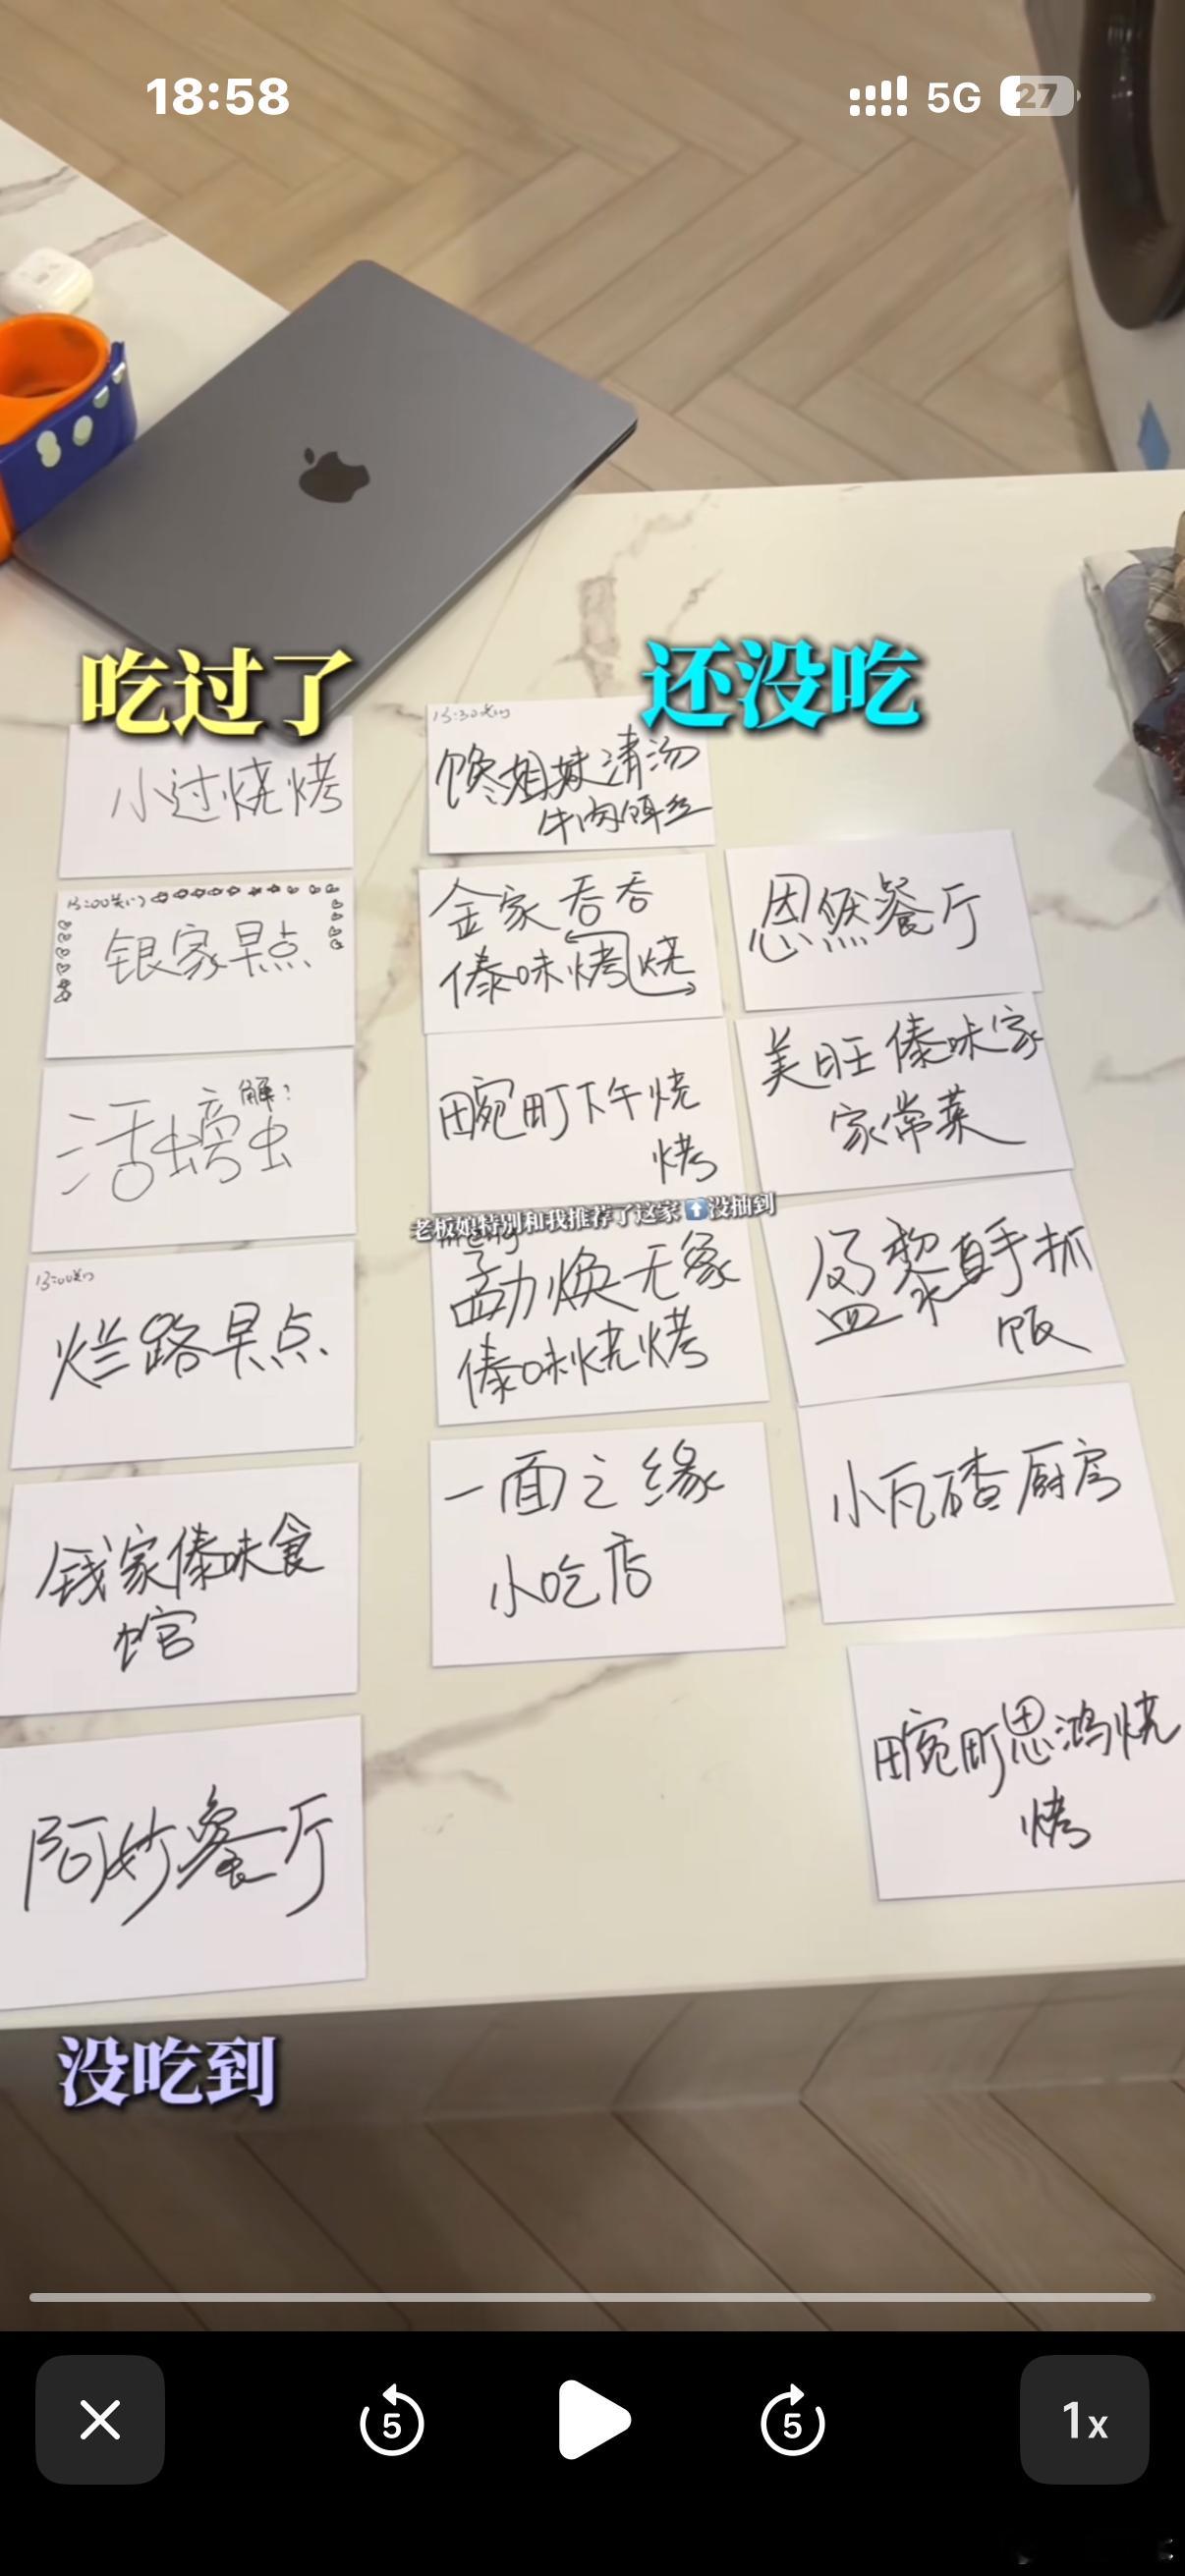 18:58
5G
27
吃过了
还没吃
小过烧烤
13:00关门
银家早点
活螃
解:
13:00关门
烂路早点
钱家傣味食
馆
阿妙餐厅
没吃到
13:30关门
馋姐妹清汤
牛肉饵丝
金家吞吞
傣味烤烧
畹町下午烧
烤
老板娘特别和我推荐了这家⬆️没抽到
meng
勐焕无象
傣味烧烤
一面之缘
小吃店
恩然餐厅
美旺傣味家
家常菜
盈黎真手抓
饭
小瓦碴厨房
畹町思鸿烧
烤
5
5
1x